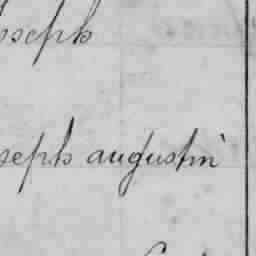 oseph
seph augustin